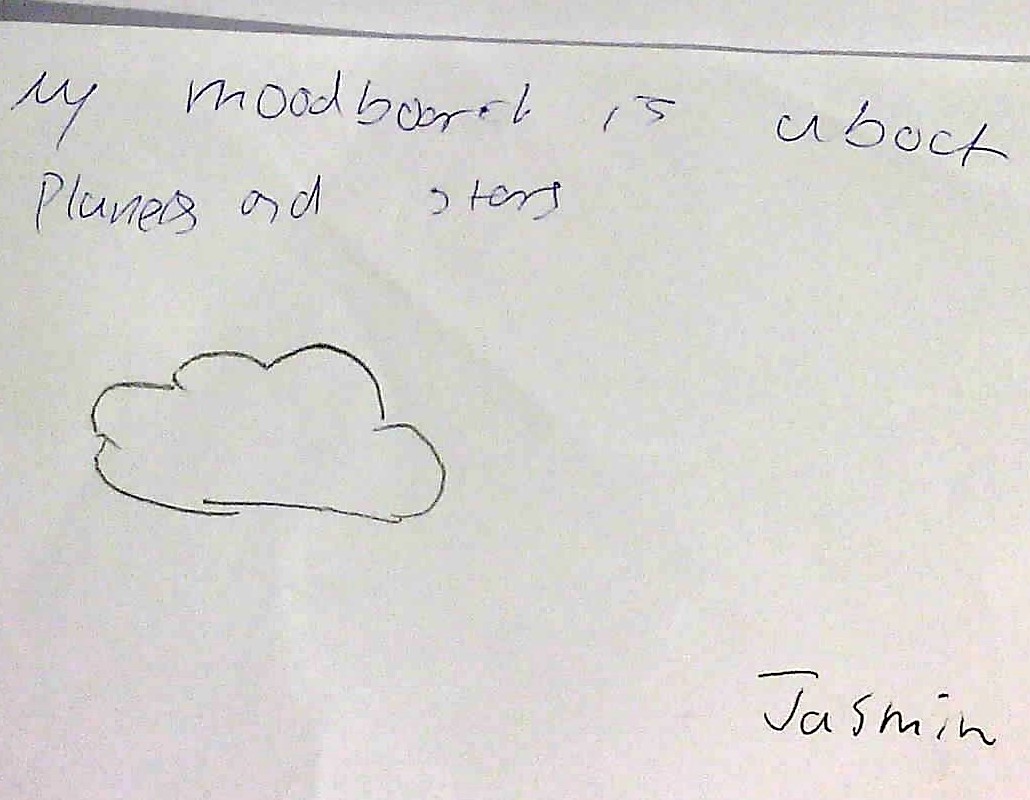 My moodboard is about
Planets and stars
Jasmin